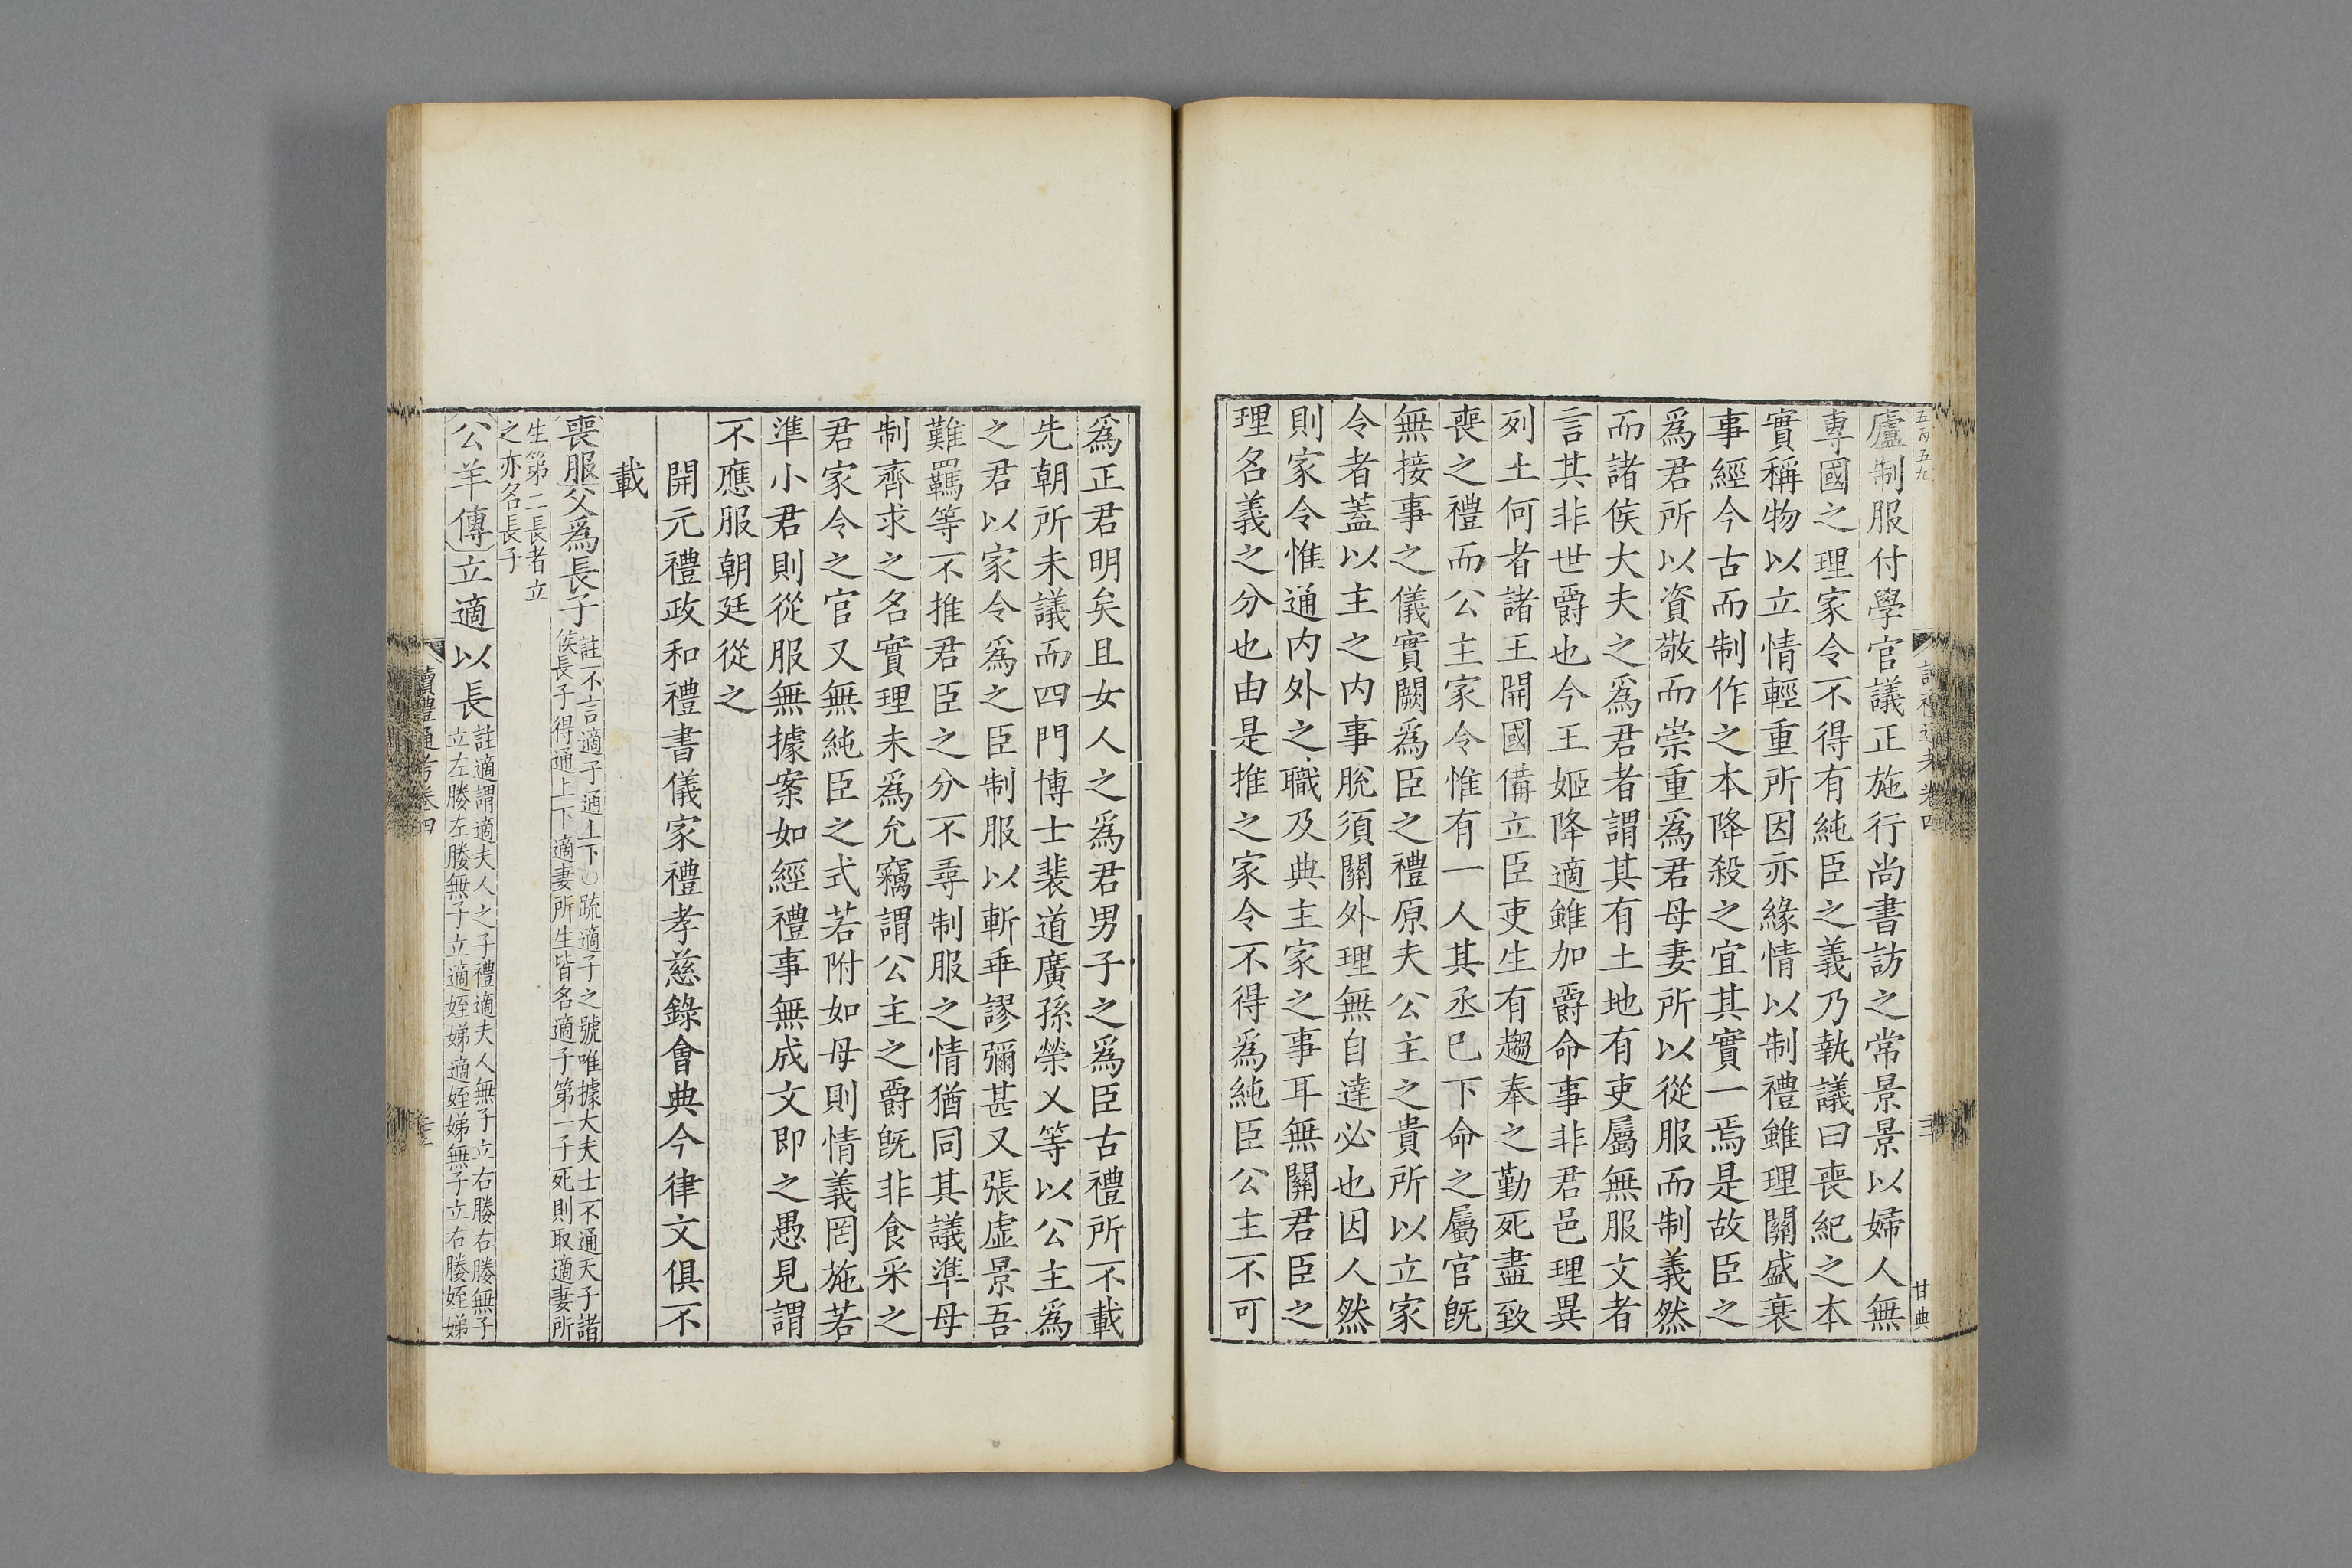 廬制服付學官議正施行尚書訪之常景景以婦人無
專國之理家令不得有純臣之義乃執議曰喪紀之本
實稱物以立情輕重所因亦緣情以制禮雖理關盛衰
事經今古而制作之本降殺之宜其實一焉是故臣之
爲君所以資敬而崇重爲君母妻所以從服而制義然
而諸侯大夫之爲君者謂其有土地有吏屬無服文者
言其非世爵也今王姬降適雖加爵命事非君邑理異
列土何者諸王開國備立臣吏生有趨奉之勤死盡致
喪之禮而公主家令惟有一人其丞已下命之屬官旣
無接事之儀實闕爲臣之禮原夫公主之貴所以立家
令者蓋以主之内事脫須關外理無自達必也因人然
則家令惟通内外之職及典主家之事耳無關君臣之
理名義之分也由是推之家令不得爲純臣公主不可
爲正君明矣且女人之爲君男子之爲臣古禮所不載
先朝所未議而四門博士裴道廣孫榮乂等以公主爲
之君以家令爲之臣制服以斬乖謬彌甚又張虛景吾
難羈等不推君臣之分不尋制服之情猶同其議準母
制齊求之名實理未爲允竊謂公主之爵旣非食采之
君家令之官又無純臣之式若附如母則情義罔施若
準小君則從服無據案如經禮事無成文即之愚見謂
不應服朝廷從之
開元禮政和禮書儀家禮孝慈錄會典今律文俱不
載
喪服父爲長子
註不言適子通上下○疏適子之號唯據大夫士不通天子諸
侯長子得通上下適妻所生皆名適子第一子死則取適妻所
生第二長者立
之亦名長子
公羊傳立適以長
註適謂適夫人之子禮適夫人無子立右媵右媵無子
立左媵左媵無子立適姪娣適姪娣無子立右媵姪娣
讀禮通考卷四
甘典